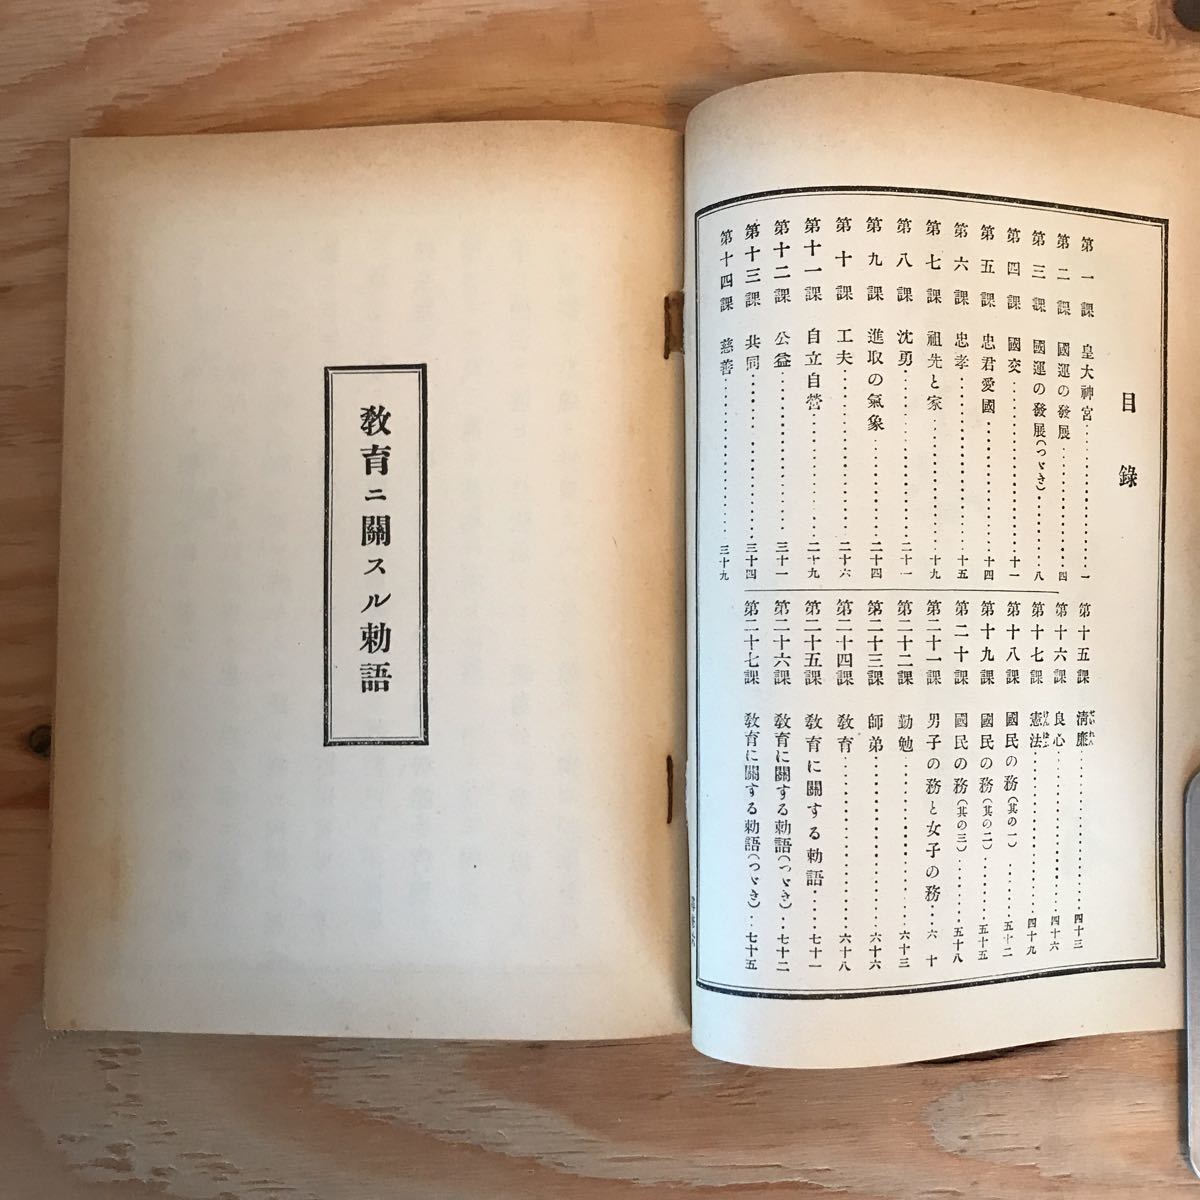 目錄
第一課 皇大神宮‥‥‥‥一
第二課 國運の發展‥‥‥‥四
第三課 國運の發展(つゞき)‥‥‥‥八
第四課 國交‥‥‥‥十一
第五課 忠君愛國‥‥‥‥十四
第六課 忠孝‥‥‥‥十五
第七課 祖先と家‥‥‥‥十九
第八課 沈勇‥‥‥‥二十一
第九課 進取の氣象‥‥‥‥二十四
第十課 工夫‥‥‥‥二十六
第十一課 自立自營‥‥‥‥二十九
第十二課 公益‥‥‥‥三十一
第十三課 共同‥‥‥‥三十四
第十四課 慈善‥‥‥‥三十九
第十五課 淸廉‥‥‥‥四十三
第十六課 良心‥‥‥‥四十六
第十七課 憲法‥‥‥‥四十九
第十八課 國民の務(其の一)‥‥‥‥五十二
第十九課 國民の務(其の二)‥‥‥‥五十五
第二十課 國民の務(其の三)‥‥‥‥五十八
第二十一課 男子の務と女子の務‥‥六十
第二十二課 勤勉‥‥‥‥六十三
第二十三課 師弟‥‥‥‥六十六
第二十四課 敎育‥‥‥‥六十八
第二十五課 敎育に關する勅語‥‥‥‥七十一
第二十六課 敎育に關する勅語(つゞき)‥‥七十二
第二十七課 敎育に關する勅語(つゞき)‥‥七十五
敎育ニ關スル勅語